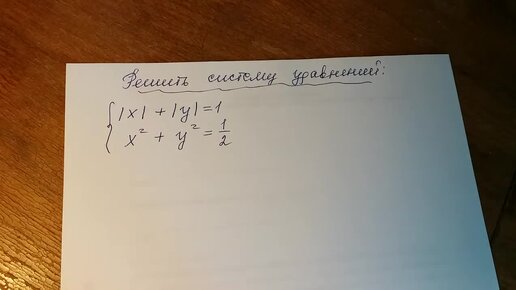 Решить систему уравнений:
{ |x| + |y| = 1
x² + y² = 1/2